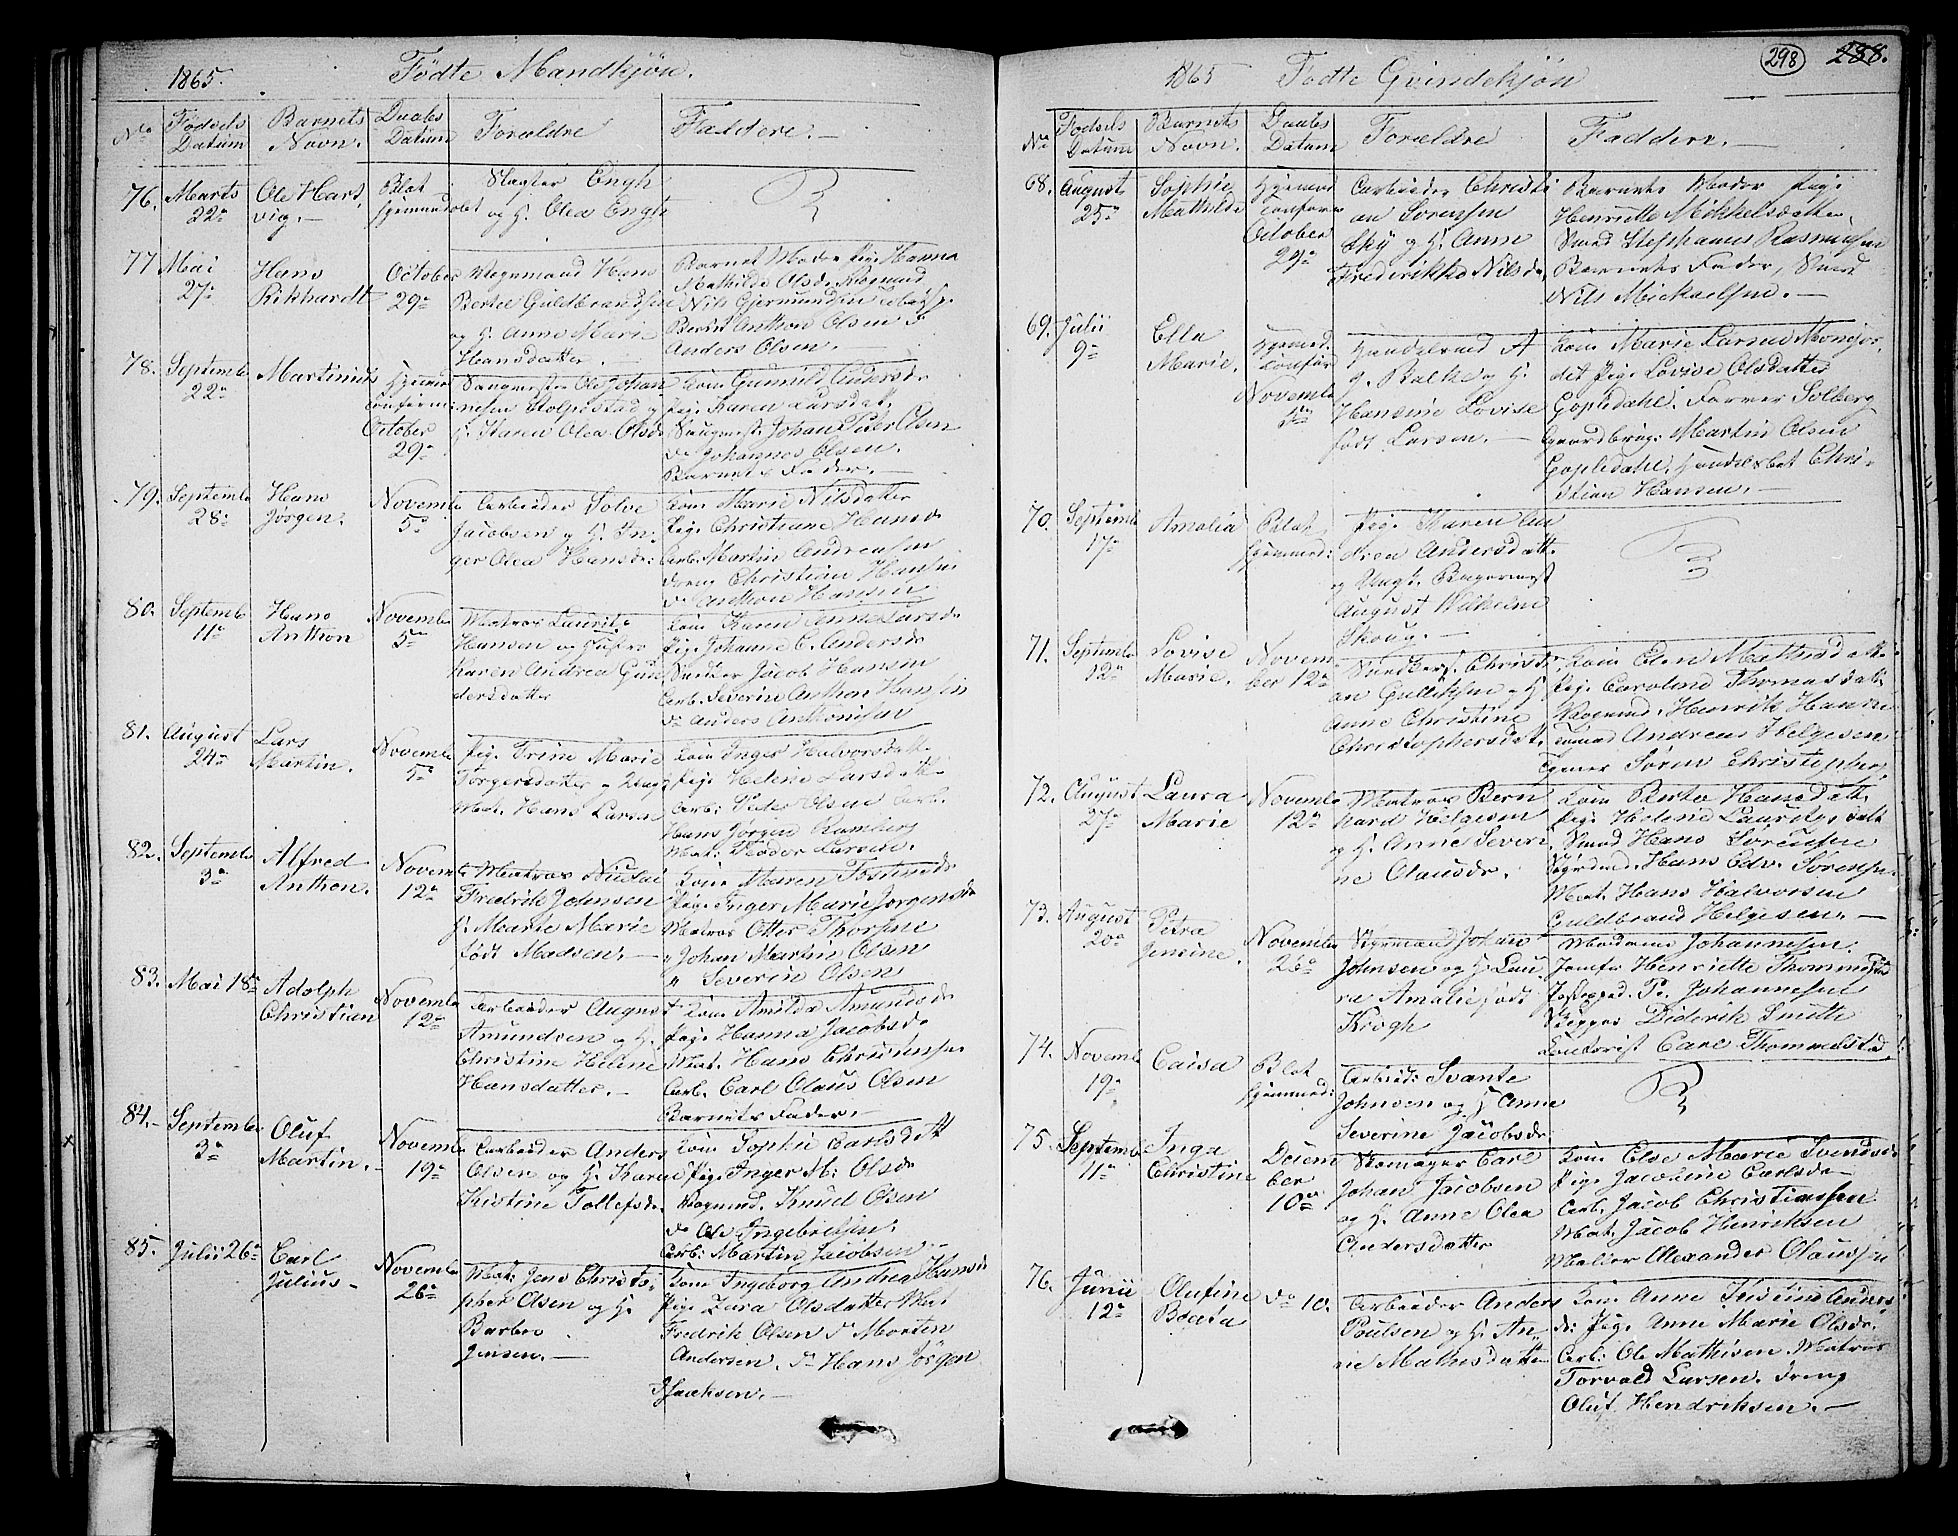 1865. Födte Mandkjön.
No Födsels Datum Barnets Navn. Daabs Datum Forældre Faddere.
76. Marts 22 Ole Hartvig. Blot hjemmedøbt Slagter Engh
og H. Olea Engh
77 Mai 27 Hans Rikhardt October 29 Vognmand Hans
Bertel Guldbrandsen
og H. Anne Marie
Hansdatter.
Barnets Moder Pige Hanna
Mathilde Olsd.
Nils Gjermundsen
Anthon Olsen
Anders Olsen.
78. Septembe 22 Martinius October 29 Ole Johan
nesen Stolpestad og
H. Karen Olea Olsd
Kone Gunnild Andersd
Pige Karen Larsdat.
Saugmest. Johan Peter Olsen
do Johannes Olsen.
Barnets Fader.
79. Septembe 28 Hans Jörgen. Novembe 5 Arbeider Solve
Jacobsen og H. In-
ger Olea Hansd:
Kone Marie Nilsdatter
Pige Christiane Hansd
Arb. Martin Andreasen
Christian Hansen
do Anthon Hansen
80. Septembe 11 Hans Anthon Novembe 5 Matros Laurits
Hansen og Hustro
Karen Andrea Gun
dersdatter
Kone Karen Anne Larsd
Pige Johanne C. Andersd
Snedker Jacob Hansen
Arb. Severin Anthon Hansen
do Anders Anthonisen
81. August 24 Lars Martin. Novembe 5 Pige Trine Marie
Torgersdatter og Ung
Mat. Hans Larsen
Kone Inger Halvorsdatt.
Pige Helene Larsdatt
Arb: Peder Olsen Arb.
Hans Jörgen Ramberg
Mat. Theodor Larsen.
82. Septembe 3 Alfred Anthon. Novemb 12 Matros Nicolai
Fredrik Johnsen
H. Marte Marie
födt Madsen.
Kone Maren
Pige Inger Marie Jörgensd
Matros Otter Thorsen
" Johan Martin Olsen
" Severin Olsen
83. Mai 18 Adolph Christian Novembe 12 Arbeider August
Amundsen og H.
Christine Helene
Hansdatter.
Kone Amilda Amundsd
Pige Hanna Jacobsd
Mat. Hans Christensen
Arb. Carl Olaus Olsen
Barnets Fader.
84. Septembe 3 Oluf Martin. Novembe 19 Arbeider Anders
Olsen og H. Karen
Kristine Tollefsd.
Kone Sophie Carlsdatt
Pige Inger M: Olsd
Vognmd. Knud Olsen
do Ole Ingebretsen.
Arb: Martin Jacobsen
85. Julii 26 Carl Julius Novembe 26 Mat. Jens Christo-
pher Olsen og H.
Barbro
Jensen.
Kone Ingeborg Andrea Hansen
Pige Zara Olsdatter Mat
Fredrik Olsen do Morten
Andersen. do Hans Jörgen
Isachsen.
298 288.
1865 Födte Qvindekjön
No Födsels Datum Barnets Navn. Daabs Datum Forældre Faddere.
68. August 25 Sophie Mathilde Hjemmed Confirm October 29 Arbeider Christi
an Sörensen
Sky og H. Anne
Frederikke Nilsd.
Barnets Moder Pige
Henriette Mikkelsdatter,
Smed Stephanus Rasmusen
Barnets Fader, Smed
Nils Mickaelsen.
69. Julii 9 Ella Marie. Hjemmed. Confirm Novembe 5 Handelsmd A
J. Balke og H.
Hansine Lovise
födt Larsen.
Kone Marie Larsen
Pige Lovise Olsdatter
Gopledahl. Farver Solberg
Gaardbrug: Martin Olsen
Gopledahl, Handelsbet Chri-
stian Hansen.
70. Septemb 17 Amalia Blot hjemmed: Pige Karen An
drea Andersdatt.
og Ungk. Bagermest
August Wilhelm
Skoug.
71. Septembe 12 Lovise Marie. Novem ber 12 Christi
an Gulliksen og H.
Anne Christine
Christophersdat.
Kone Elen Mathisdatt.
Pige Caroline Thomasdatt.
Vognmd. Henrik Hansen
Andreas Helgesen
Sören Christophersen
72. August 27 Laura Marie Novembe 12 Matros Bern
hard Helgesen
og H. Anne Severi
ne Olausdr.
Kone Berte Hansdatt.
Pige Helene Lauritsdatt
Smed Hans Sörensen
Hans Edv. Sörensen
Mat. Hans Halvorsen
Guldbrand Helgesen.
73. August 20 Petra Jensine. Novembe 26 Styrmand Johan
Johnsen og H. Lau
ra Amalie födt
Krogh
Madame Johannesen.
Jomfr Henriette Thommelstad
Johannesen
Skipper Diderik Smith
Contorist Carl Thommelstad
74. Novembe 19 Caisa Blot hjemmed: Arbeid: Svante
Johnsen og H Anne
Severine Jacobsdr
75. Septembe 11 Inga Christine Decem ber 10 Skomager Carl
Johan Jacobsen
og H. Anne Olea
Andersdatter
Kone Else Marie Svendsd
Pige Jacobine Carlsd
Arb. Jacob Christiansen
Mat. Jacob Henriksen
Möller Alexander Olaussen
76. Junii 12 Olufine Beata do 10. Arbeider Anders
Poulsen og H. An-
ne Mathisdatter
Kone Anne Kristine Anders
d: Pige Anne Marie Olsdr.
Arb: Ole Mathisen. Matros
Torvald Larsen. Dreng
Oluf Hendriksen.